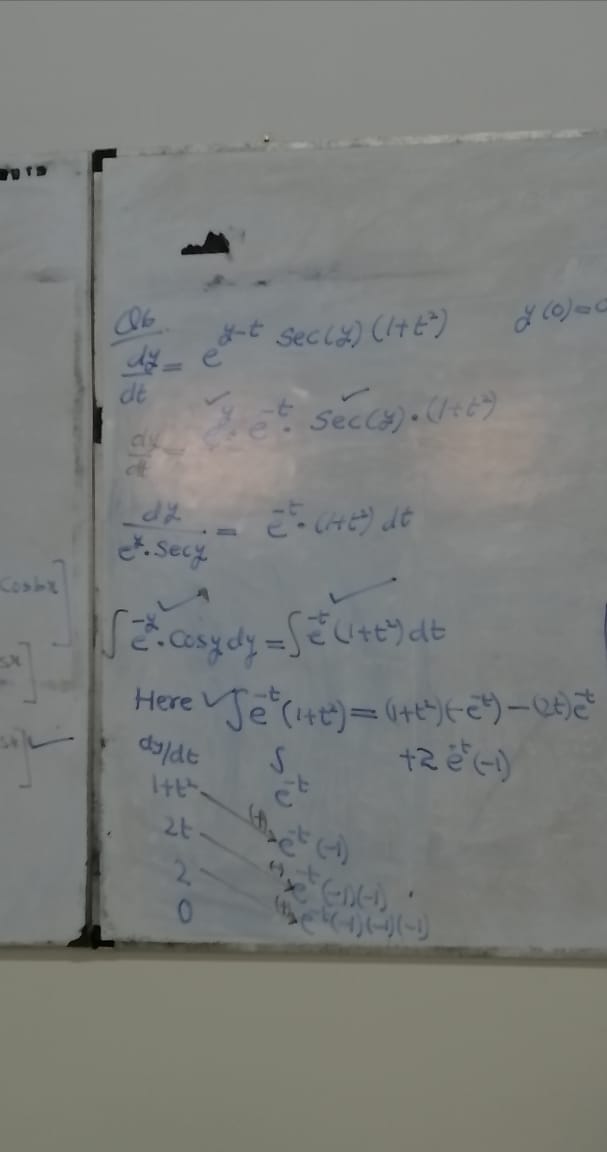 Q6
dy/dt = e^{y-t} Sec(y) (1+t²) y(0)=0
dy/dt = e^y · e^{-t} · Sec(y) · (1+t²)
dy/(e^y · Secy) = e^{-t} · (1+t²) dt
∫ e^{-y} · Cosy dy = ∫ e^{-t} (1+t²) dt
Here ∫ e^{-t} (1+t²) = (1+t²)(-e^{-t}) - (2t) e^{-t}
+2 e^{-t} (-1)
dy/dt ∫
1+t² e^{-t}
2t (+) e^{-t} (-1)
2 (-) e^{-t} (-1)(-1)
0 (+) e^{-t} (-1)(-1)(-1)